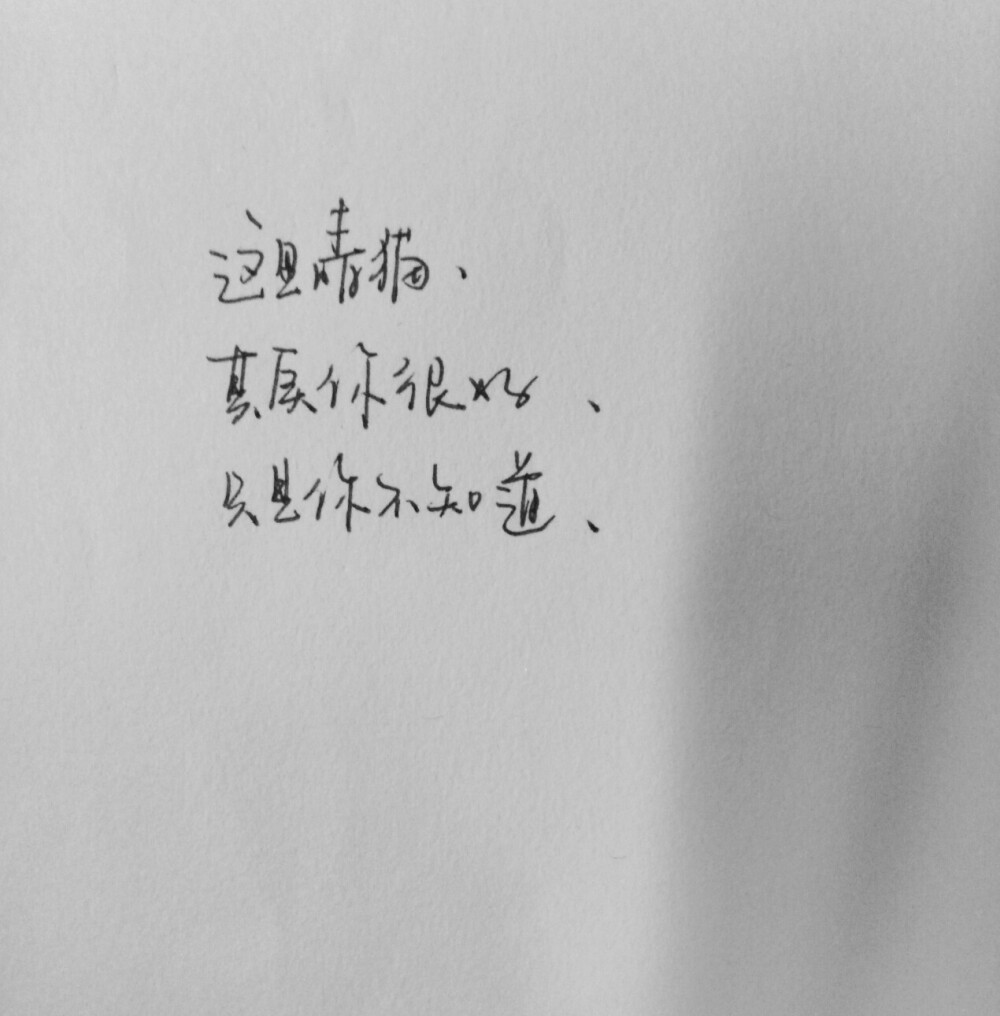 这是晴猫、
其实你很好、
只是你不知道、